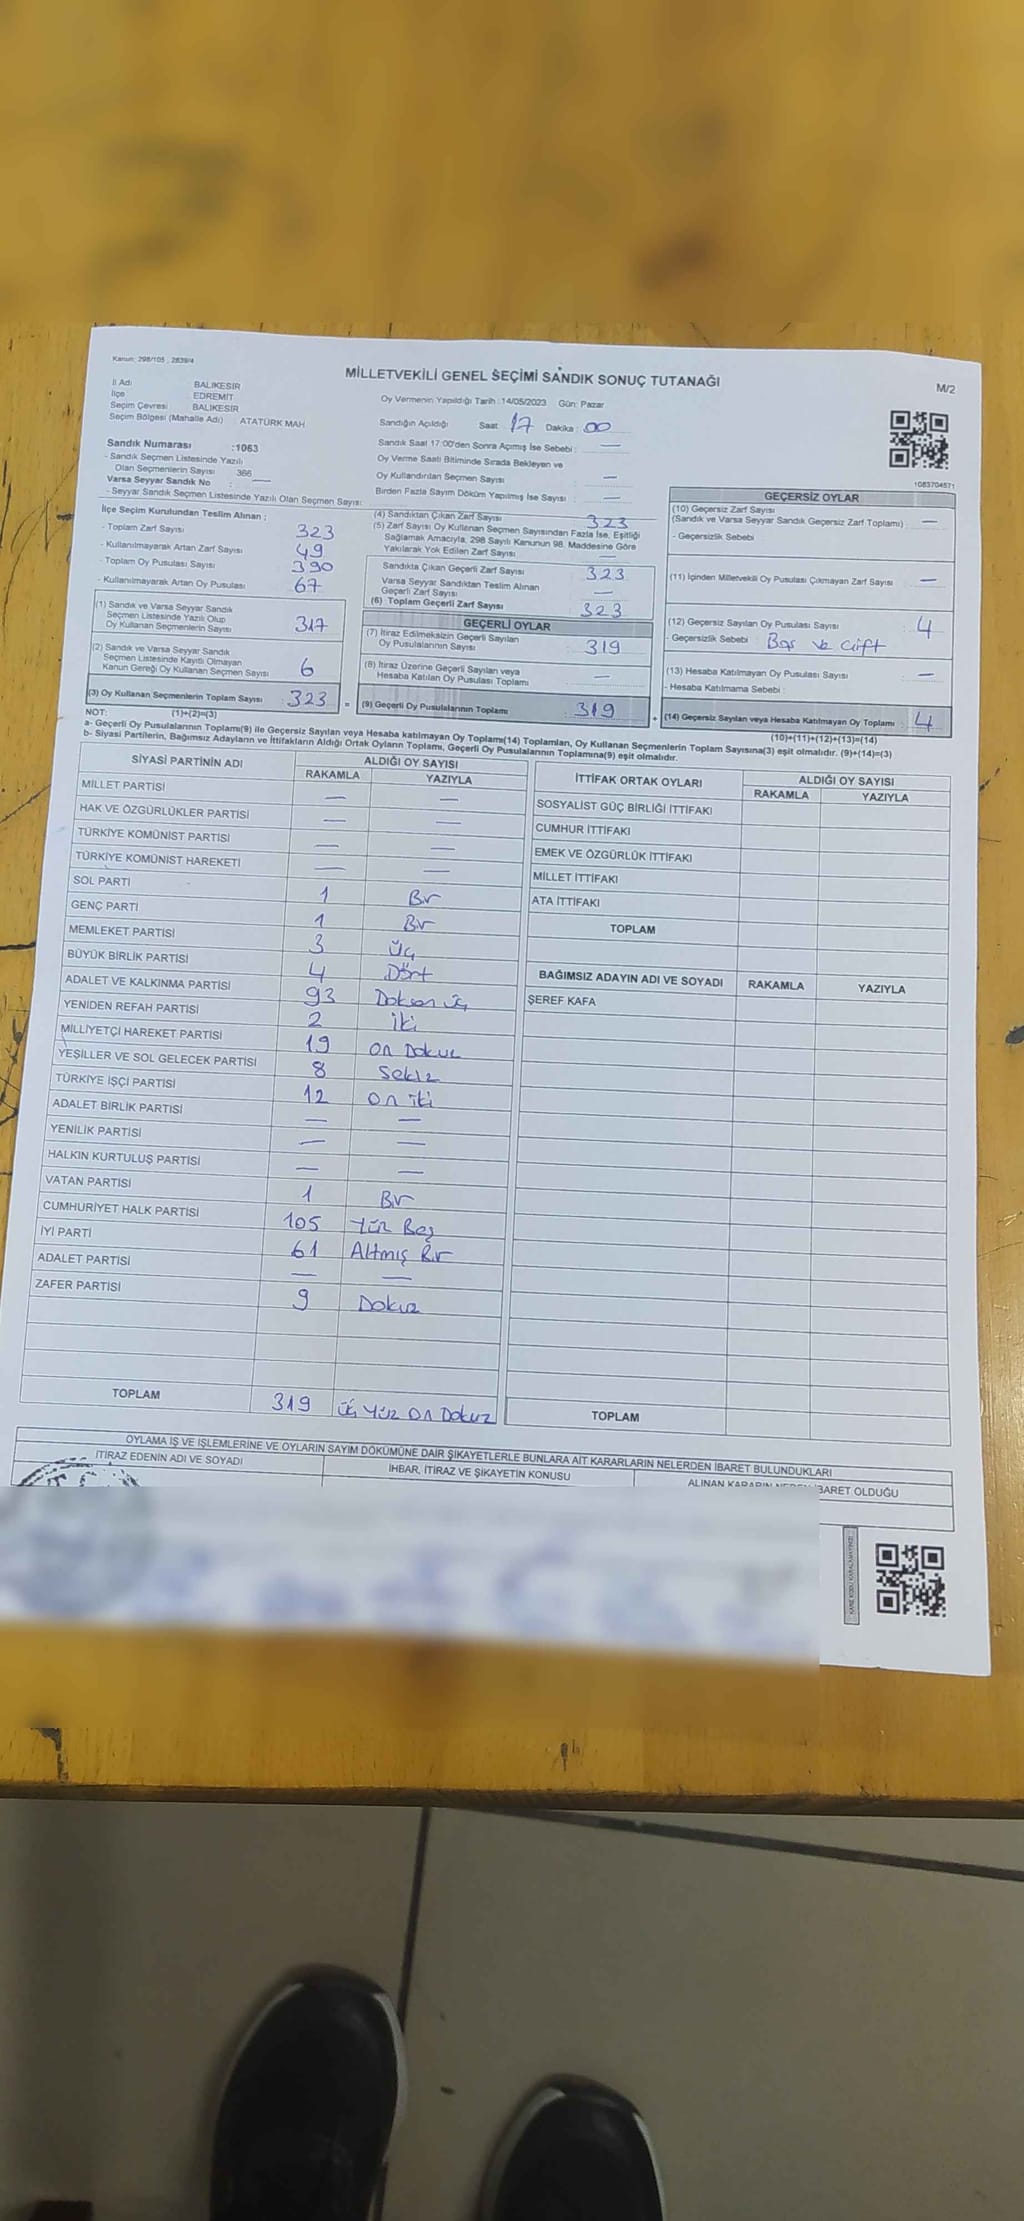 Kanun: 298/105 , 2839/4
MİLLETVEKİLİ GENEL SEÇİMİ SANDIK SONUÇ TUTANAĞI
M/2
İl Adı BALIKESİR
İlçe EDREMİT
Seçim Çevresi BALIKESİR
Seçim Bölgesi (Mahalle Adı) ATATÜRK MAH
Oy Vermenin Yapıldığı Tarih :14/05/2023 Gün: Pazar
Sandığın Açıldığı Saat 17 Dakika : 00
Sandık Saat 17:00'den Sonra Açımış İse Sebebi : —
Oy Verme Saati Bitiminde Sırada Bekleyen ve
Oy Kullandırılan Seçmen Sayısı : —
Birden Fazla Sayım Döküm Yapılmış İse Sayısı : —
1083704571
Sandık Numarası :1063
- Sandık Seçmen Listesinde Yazılı
Olan Seçmenlerin Sayısı 366
Varsa Seyyar Sandık No : —
- Seyyar Sandık Seçmen Listesinde Yazılı Olan Seçmen Sayısı:
İlçe Seçim Kurulundan Teslim Alınan :
- Toplam Zarf Sayısı 323
- Kullanılmayarak Artan Zarf Sayısı 49
- Toplam Oy Pusulası Sayısı 390
- Kullanılmayarak Artan Oy Pusulası 67
(1) Sandık ve Varsa Seyyar Sandık
Seçmen Listesinde Yazılı Olup
Oy Kullanan Seçmenlerin Sayısı 317
(2) Sandık ve Varsa Seyyar Sandık
Seçmen Listesinde Kayıtlı Olmayan
Kanun Gereği Oy Kullanan Seçmen Sayısı 6
(3) Oy Kullanan Seçmenlerin Toplam Sayısı : 323 =
(1)+(2)=(3)
(4) Sandıktan Çıkan Zarf Sayısı 323
(5) Zarf Sayısı Oy Kullanan Seçmen Sayısından Fazla İse, Eşitliği
Sağlamak Amacıyla, 298 Sayılı Kanunun 98. Maddesine Göre
Yakılarak Yok Edilen Zarf Sayısı —
Sandıkta Çıkan Geçerli Zarf Sayısı : 323
Varsa Seyyar Sandıktan Teslim Alınan
Geçerli Zarf Sayısı —
(6) Toplam Geçerli Zarf Sayısı 323
GEÇERLİ OYLAR
(7) İtiraz Edilmeksizin Geçerli Sayılan
Oy Pusulalarının Sayısı : 319
(8) İtiraz Üzerine Geçerli Sayılan veya
Hesaba Katılan Oy Pusulası Toplamı : —
(9) Geçerli Oy Pusulalarının Toplamı : 319 +
GEÇERSİZ OYLAR
(10) Geçersiz Zarf Sayısı
(Sandık ve Varsa Seyyar Sandık Geçersiz Zarf Toplamı) : —
- Geçersizlik Sebebi
(11) İçinden Milletvekili Oy Pusulası Çıkmayan Zarf Sayısı : —
(12) Geçersiz Sayılan Oy Pusulası Sayısı : 4
- Geçersizlik Sebebi : Boş ve Çift
(13) Hesaba Katılmayan Oy Pusulası Sayısı : —
- Hesaba Katılmama Sebebi :
(14) Geçersiz Sayılan veya Hesaba Katılmayan Oy Toplamı : 4
(10)+(11)+(12)+(13)=(14)
NOT:
a- Geçerli Oy Pusulalarının Toplamı(9) ile Geçersiz Sayılan veya Hesaba katılmayan Oy Toplamı(14) Toplamları, Oy Kullanan Seçmenlerin Toplam Sayısına(3) eşit olmalıdır. (9)+(14)=(3)
b- Siyasi Partilerin, Bağımsız Adayların ve İttifakların Aldığı Ortak Oyların Toplamı, Geçerli Oy Pusulalarının Toplamına(9) eşit olmalıdır.
SİYASİ PARTİNİN ADI ALDIĞI OY SAYISI
RAKAMLA YAZIYLA
MİLLET PARTİSİ — —
HAK VE ÖZGÜRLÜKLER PARTİSİ — —
TÜRKİYE KOMÜNİST PARTİSİ — —
TÜRKİYE KOMÜNİST HAREKETİ — —
SOL PARTİ 1 Bir
GENÇ PARTİ 1 Bir
MEMLEKET PARTİSİ 3 Üç
BÜYÜK BİRLİK PARTİSİ 4 Dört
ADALET VE KALKINMA PARTİSİ 93 Doksan üç
YENİDEN REFAH PARTİSİ 2 iki
MİLLİYETÇİ HAREKET PARTİSİ 19 On Dokuz
YEŞİLLER VE SOL GELECEK PARTİSİ 8 Sekiz
TÜRKİYE İŞÇİ PARTİSİ 12 On iki
ADALET BİRLİK PARTİSİ — —
YENİLİK PARTİSİ — —
HALKIN KURTULUŞ PARTİSİ — —
VATAN PARTİSİ 1 Bir
CUMHURİYET HALK PARTİSİ 105 Yüz Beş
İYİ PARTİ 61 Altmış Bir
ADALET PARTİSİ — —
ZAFER PARTİSİ 9 Dokuz
TOPLAM 319 üç Yüz On Dokuz
İTTİFAK ORTAK OYLARI ALDIĞI OY SAYISI
RAKAMLA YAZIYLA
SOSYALİST GÜÇ BİRLİĞİ İTTİFAKI
CUMHUR İTTİFAKI
EMEK VE ÖZGÜRLÜK İTTİFAKI
MİLLET İTTİFAKI
ATA İTTİFAKI
TOPLAM
BAĞIMSIZ ADAYIN ADI VE SOYADI RAKAMLA YAZIYLA
ŞEREF KAFA
TOPLAM
OYLAMA İŞ VE İŞLEMLERİNE VE OYLARIN SAYIM DÖKÜMÜNE DAİR ŞİKAYETLERLE BUNLARA AİT KARARLARIN NELERDEN İBARET BULUNDUKLARI
İTİRAZ EDENİN ADI VE SOYADI İHBAR, İTİRAZ VE ŞİKAYETİN KONUSU ALINAN KARARIN NEDEN İBARET OLDUĞU